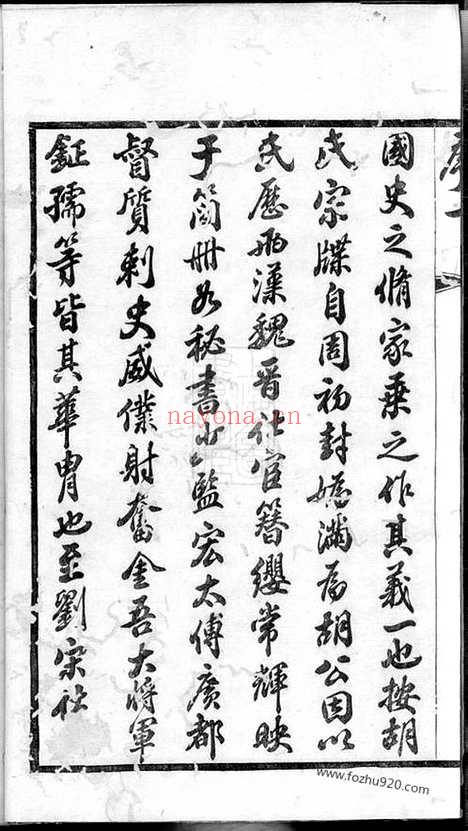 序一
國史之脩家乗之作其義一也按胡
氏宗牒自周初封媯滿為胡公因以
氏歷兩漢魏晋仕宦簪纓常輝映
于簡冊如秘書少監宏太傅廣都
督質刺史威僕射奮金吾大將軍
鉦孺等皆其華胄也至劉宋社
nayona.cn
www.fozhu920.com